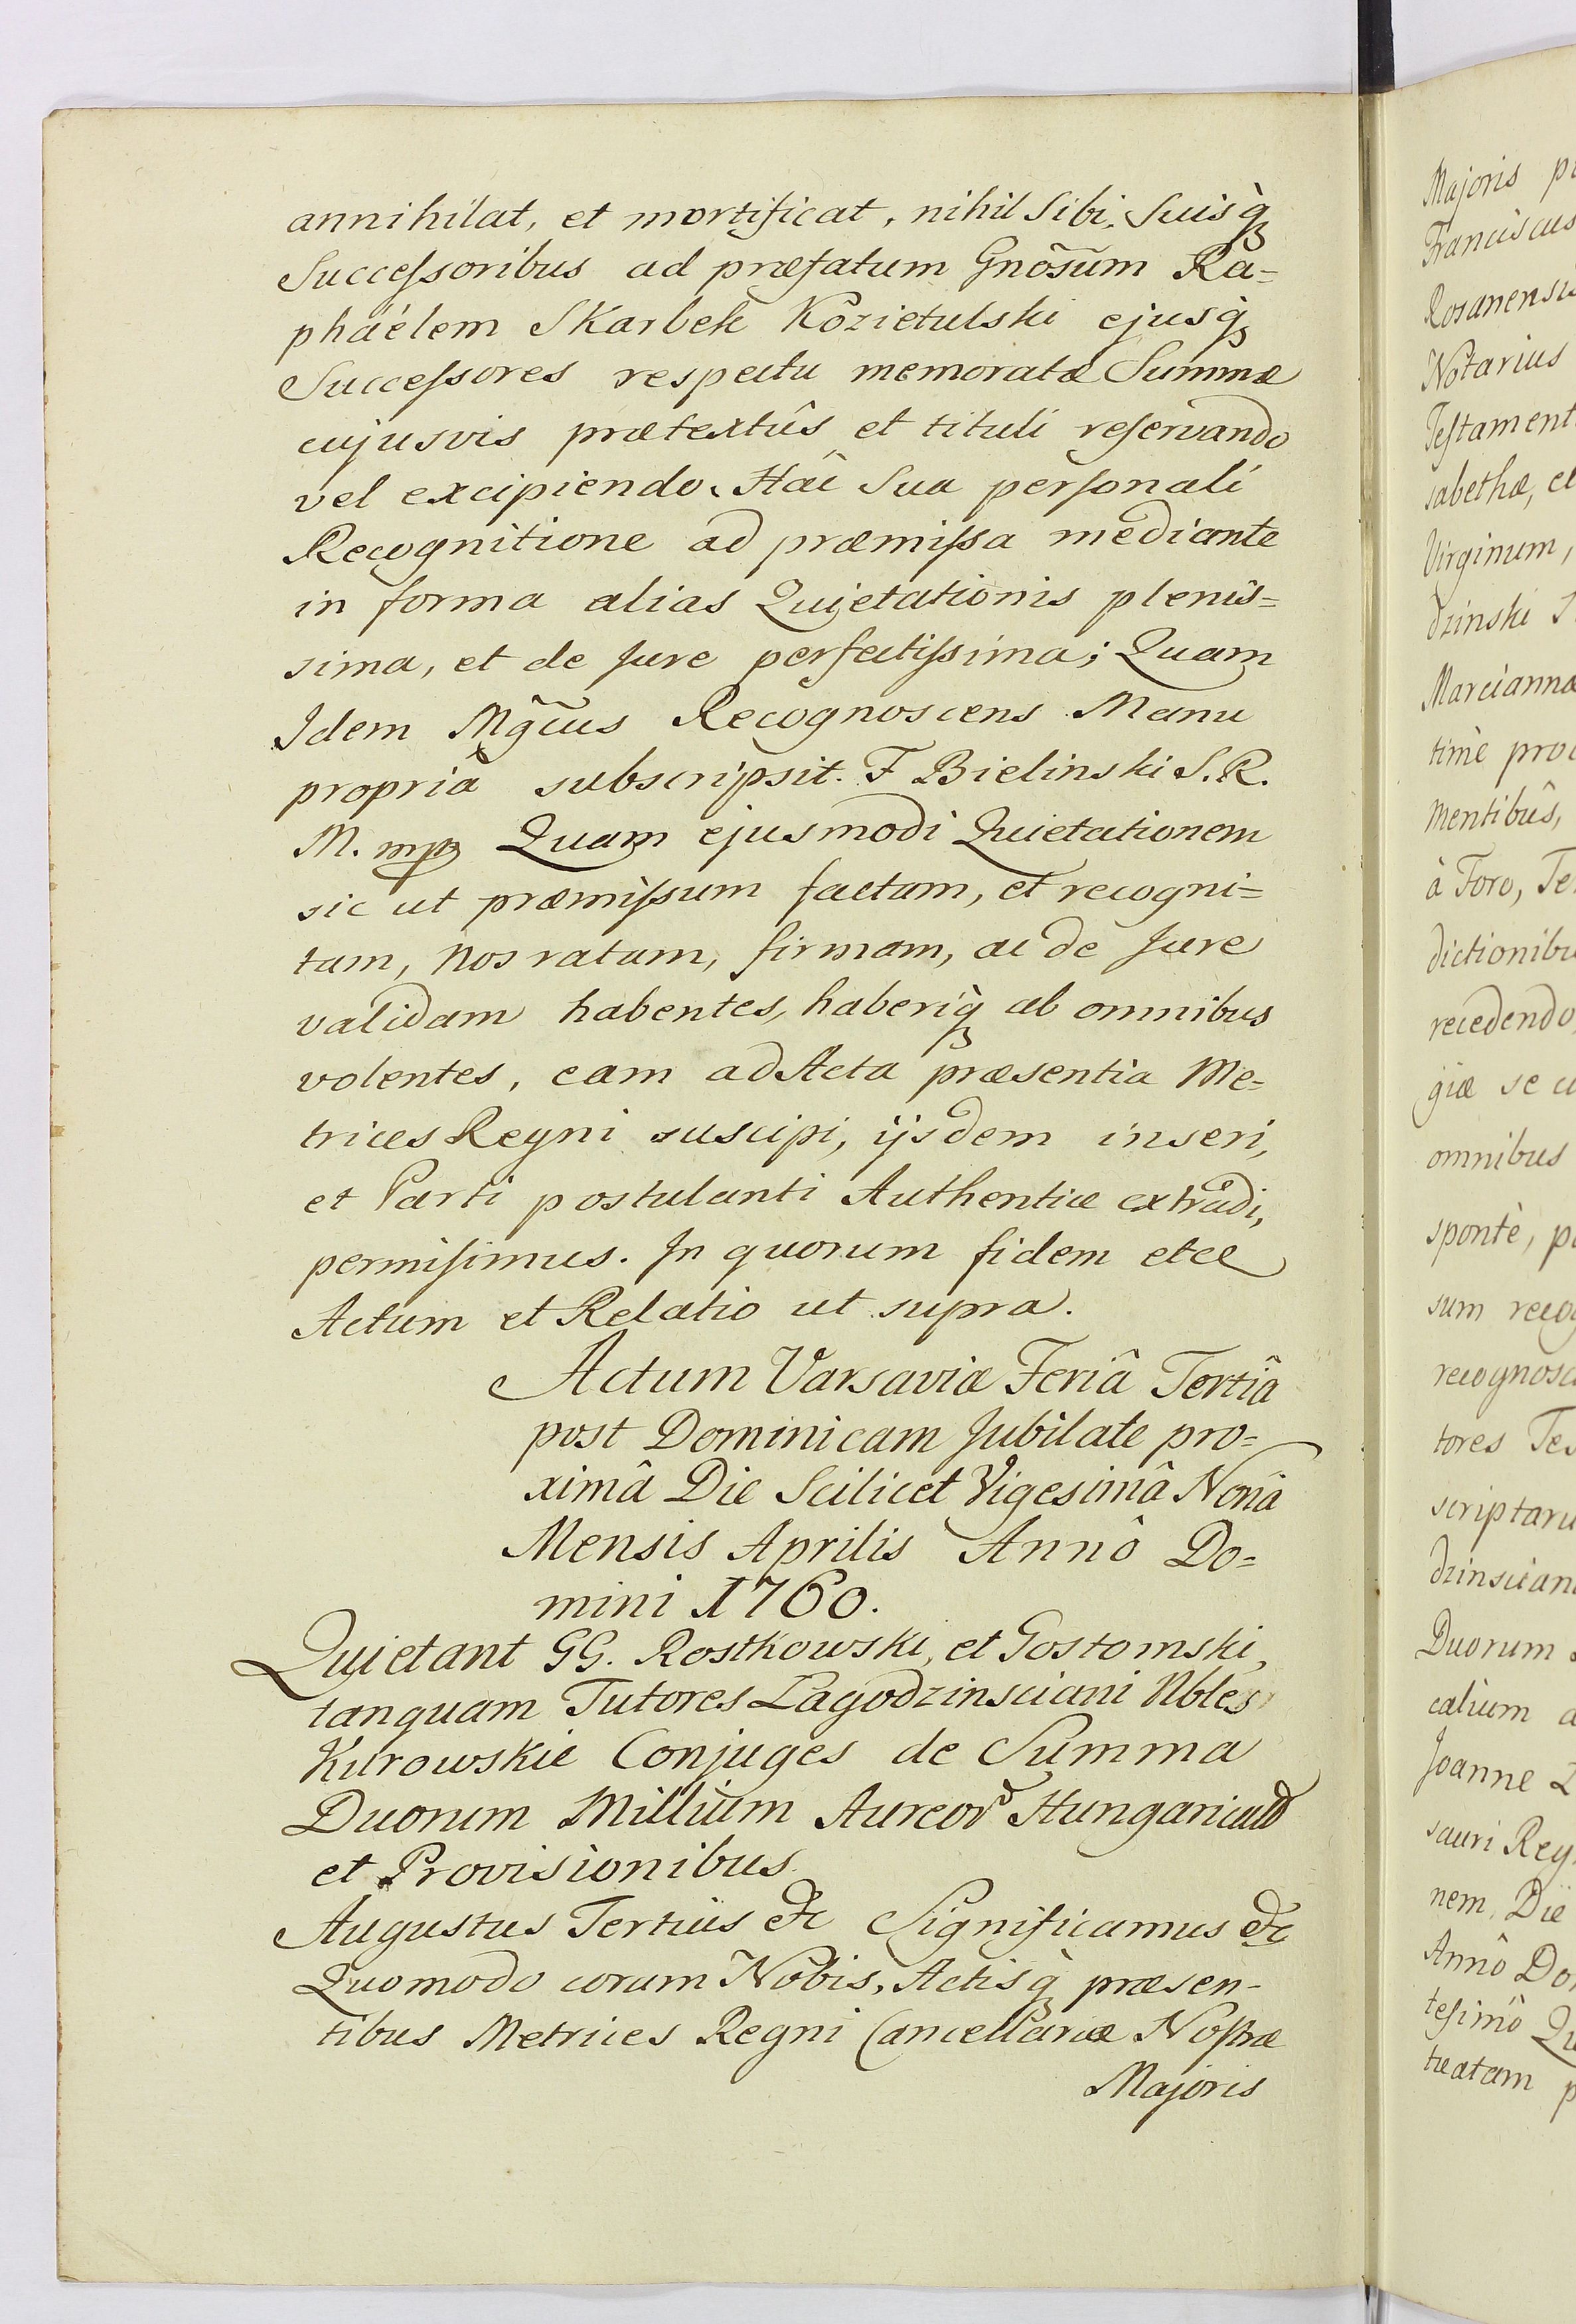 annihilat, et mortificat, nihil Sibi, Suisq̀
Successoribus ad præfatum Gnõsum Ra=
pháélem Skarbek Kozietulski ejusq̀
Successores respectu memoratæ Summæ
cujusvis prætextûs et tituli reservando
vel excipiendo. Hac Sua personali
Recognitione ad præmissa mediante
in forma alias Quietationis plenis=
sima, et de Jure perfectissima; Quam
Idem Mg̃cus Recognoscens Manu
propriâ subscripsit. F Bielinski S.R.
M. mp Quam ejusmodi Quietationem
sic ut præmissum factam, et recogni=
tam, Nos ratam, firmam, ac de Jure
validam habentes, haberiq̀ ab omnibus
volentes, eam ad Acta præsentia Me=
trices Regni suscipi, ijsdem inseri,
et Parti postulanti Authentice extradi,
permisimus. In quorum fidem etcc
Actum et Relatio ut supra.
Actum Varsaviæ Feriâ Tertiâ
post Dominicam Jubilate pro=
ximâ Die Scilicet Vigesimâ Nonâ
Mensis Aprilis Annô Do=
mini 1760.
Quietant GG. Rostkowski, et Gostomski,
tanquam Tutores Lagodzinsciani Nbles
Kurowskie Conjuges de Summa
Duorum Millium Aureor Hungaricald
et Provisionibus.
Augustus Tertius etc Significamus etc
Quomodo coram Nobis, Actisq̀ præsen-
tibus Metrices Regni Cancellariæ Nostræ
Majoris
Majoris
Franciscus
Rosanensis
Notarius
Testament
sabethæ, et
Virginum,
dzinski
Marciannæ
timè
mentibûs,
à Foro,
dictionibu
recedendo
giæ se
omnibus
spontè,
sum recog
recognosc
tores Tes
scriptaru
dzinscian
Duorum
calium
Joanne
sauri Reg
nem, Die
Annô Do
tesimô Qu
tractatam